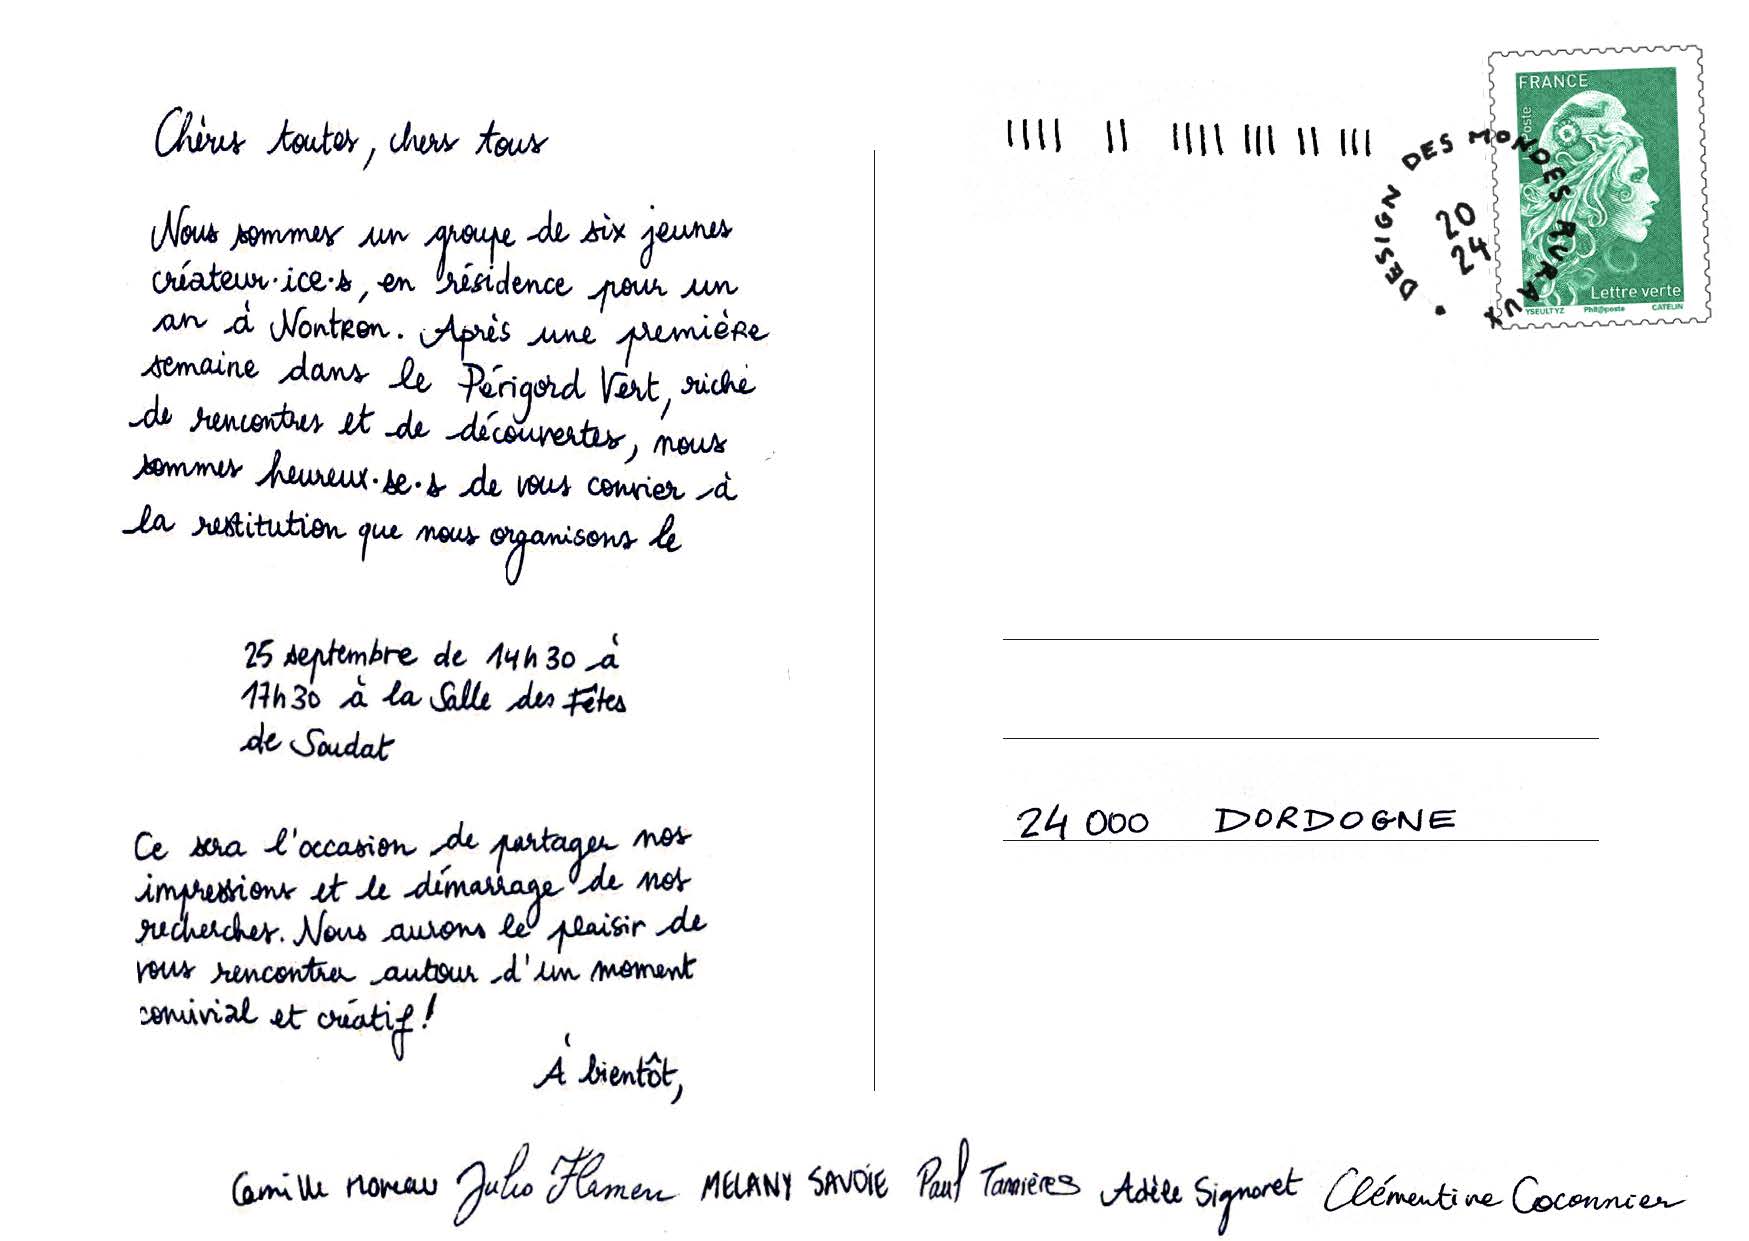 Chères toutes, chers tous
Nous sommes un groupe de six jeunes
créateur·ice·s, en résidence pour un
an à Nontron. Après une première
semaine dans le Périgord Vert, riche
de rencontres et de découvertes, nous
sommes heureux·se·s de vous convier à
la restitution que nous organisons le
25 septembre de 14h30 à
17h30 à la Salle des Fêtes
de Soudat
Ce sera l'occasion de partager nos
impressions et le démarrage de nos
recherches. Nous aurons le plaisir de
vous rencontrer autour d'un moment
convivial et créatif!
À bientôt,
Camille Moreau Julio Flamen MELANY SAVOIE Paul Tannières Adèle Signoret Clémentine Coconnier
FRANCE
La Poste
Lettre verte
YSEULTYZ Phil@poste CATELIN
DESIGN DES MONDES RURAUX
20
24
24 000 DORDOGNE